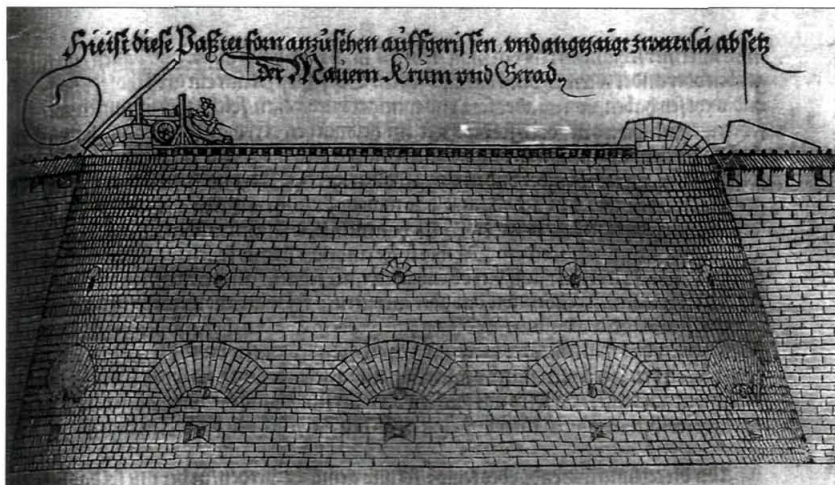 Hie ist diese Pastei forn anzusehen auffgerissen vnd angezaigt zweierlei absetz
der Mauern Krum vnd Gerad